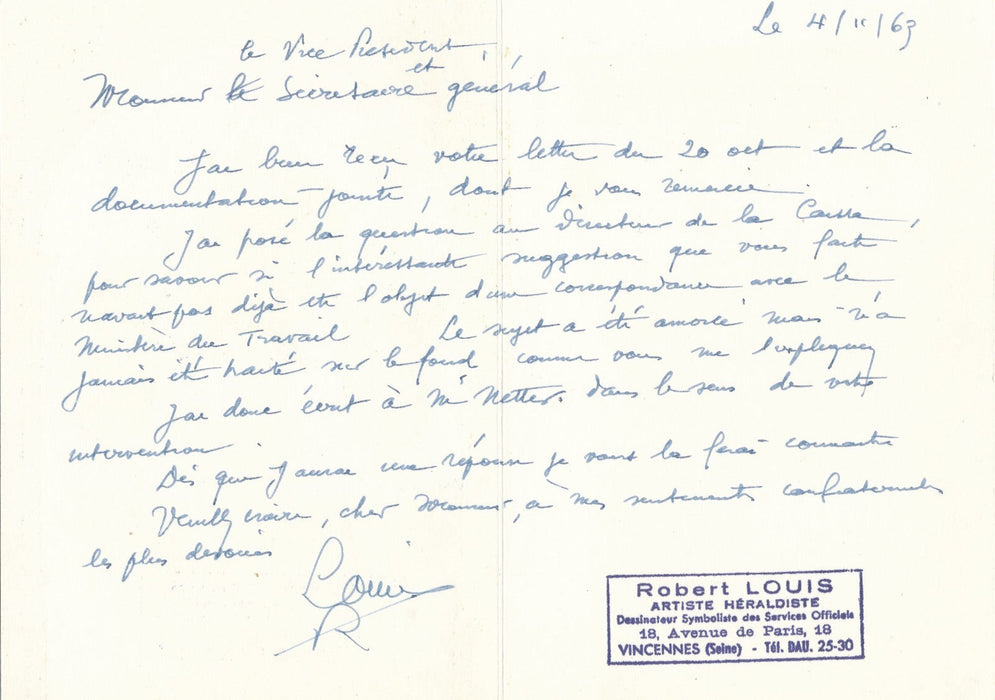 Le 4/11/63
le Vice Président,
Monsieur le Secrétaire et général
J'ai bien reçu votre lettre du 20 oct et la
documentation jointe, dont je vous remercie.
J'ai posé la question au Directeur de la Caisse,
pour savoir si l'intéressante suggestion que vous faite
n'avait pas déjà été l'objet d'une correspondance avec le
Ministère du Travail Le sujet a été amorcé mais n'a
jamais été traité sur le fond comme vous me l'expliquez
J'ai donc écrit à Mr Netter. dans le sens de votre
intervention
Dès que j'aurai une réponse je vous la ferai connaitre
Veuillez croire, cher Monsieur, à mes sentiments confraternels
les plus dévoués
Louis
R
Robert LOUIS
ARTISTE HÉRALDISTE
Dessinateur Symboliste des Services Officiels
18, Avenue de Paris, 18
VINCENNES (Seine) - Tél. DAU. 25-30